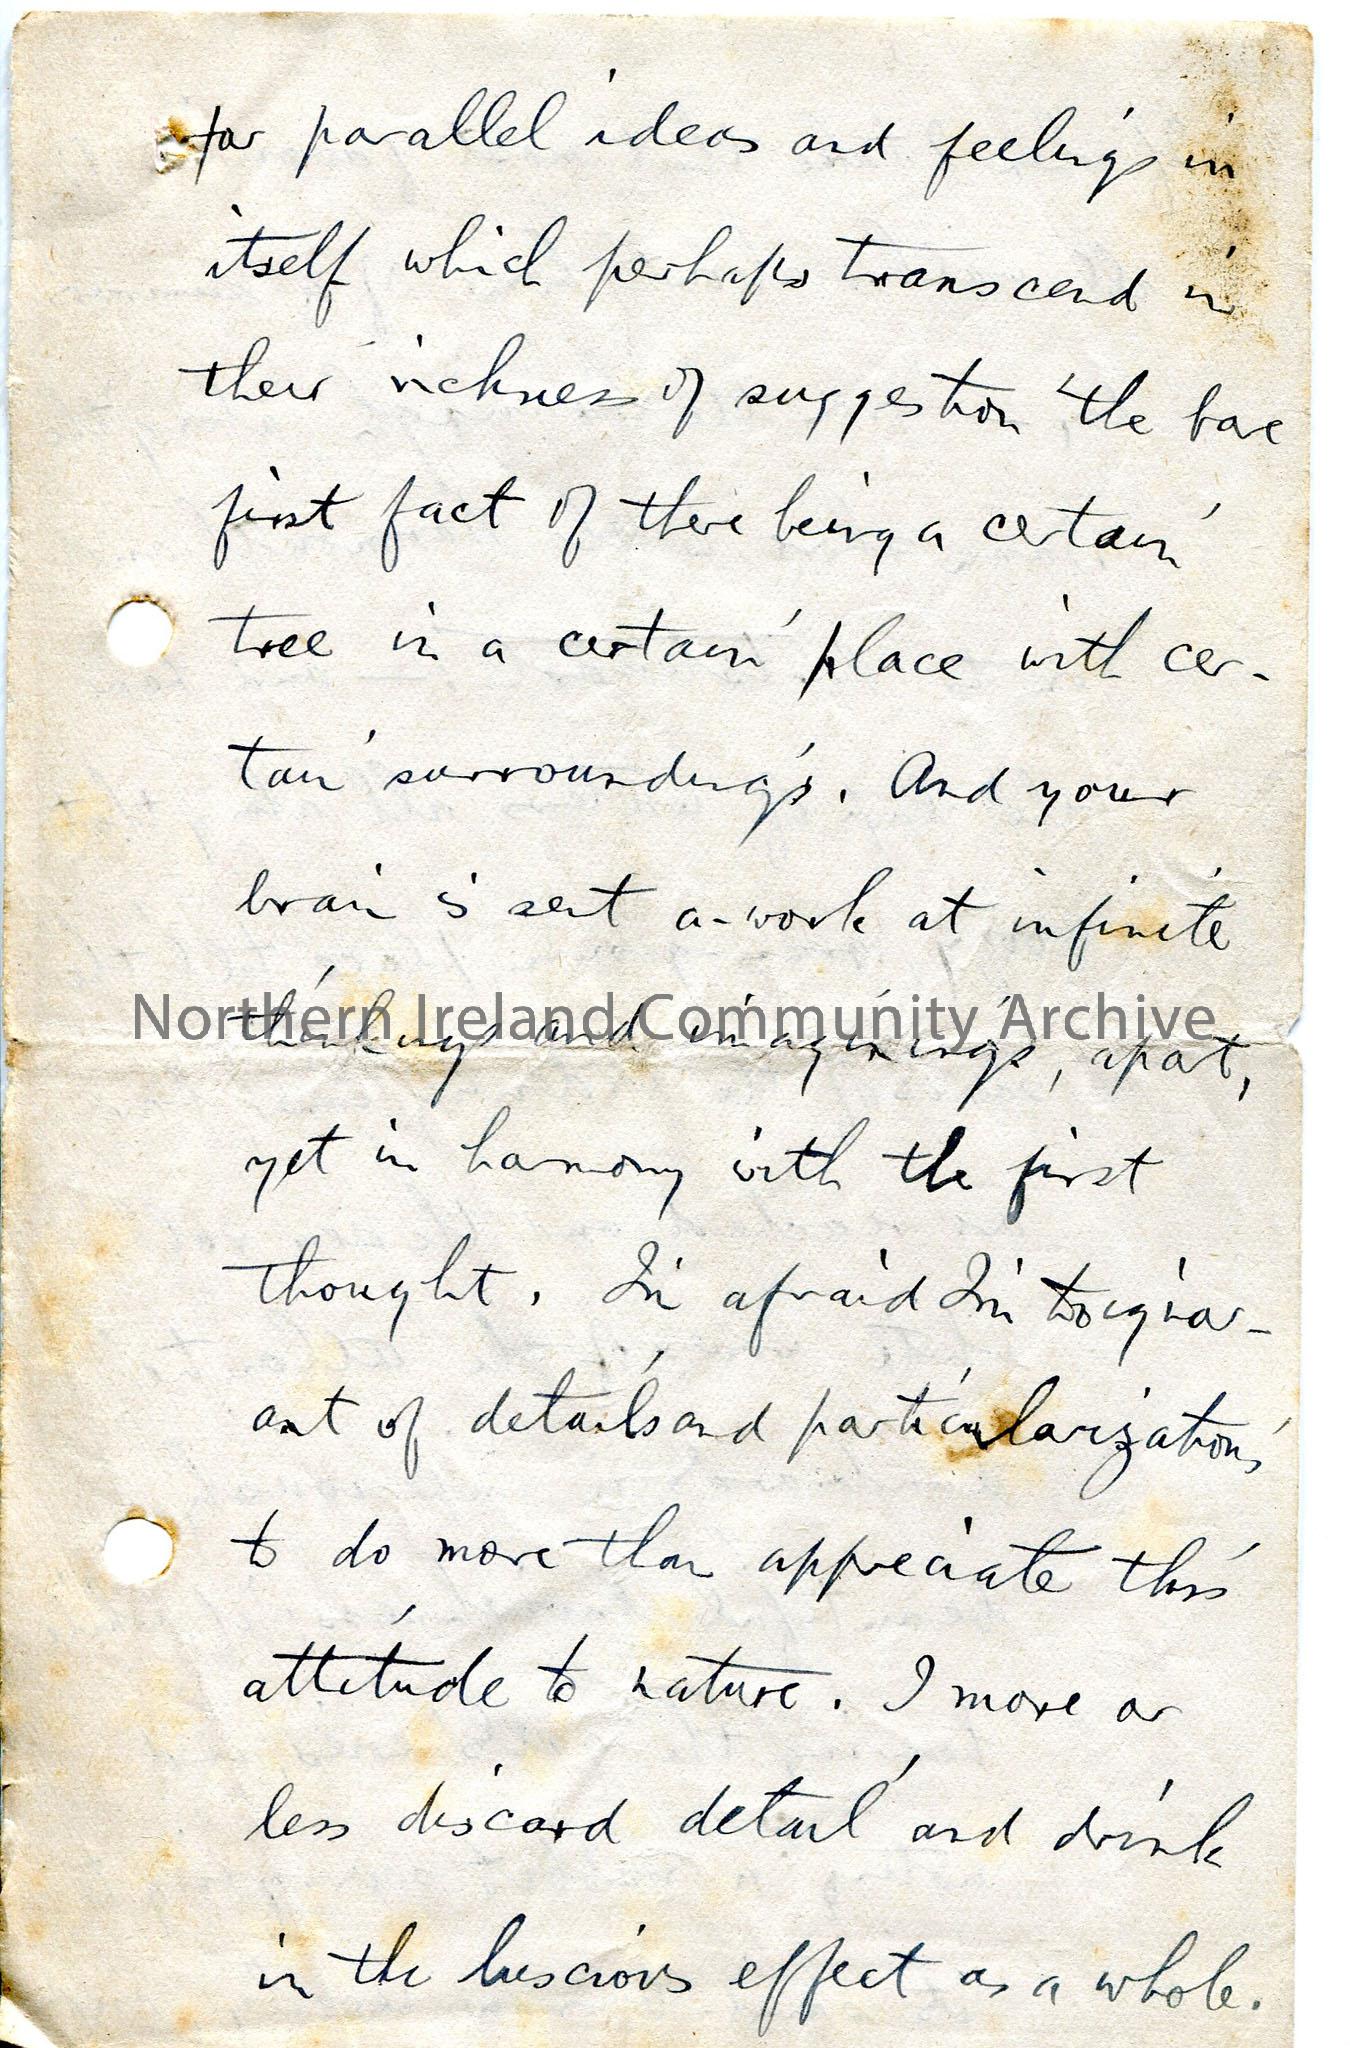 for parallel ideas and feelings in
itself which perhaps transcend in
their richness of suggestion the bare
first fact of there being a certain
tree in a certain place with cer-
tain surroundings. And your
brain is sent a-work at infinite
thinkings and imaginings, apart,
Northern Ireland Community Archive
yet in harmony with the first
thought. I'm afraid I'm too ignor-
ant of details and particularizations
to do more than appreciate this
attitude to nature. I more or
less discard detail and drink
in the luscious effect as a whole.